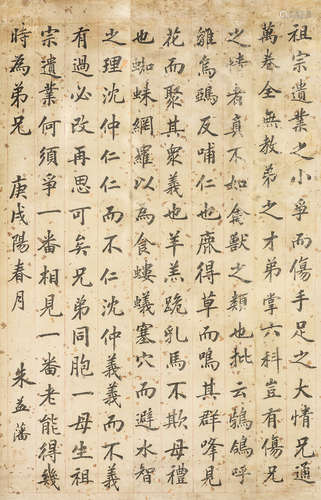 祖宗遺業之小爭而傷手足之大情兄通
萬卷全無教弟之才弟掌六科豈有傷兄
之者真不如禽獸之類也批云鶺鴒呼
雛烏鴉反哺仁也鹿得草而鳴其群蜂見
花而聚其眾義也羊羔跪乳馬不欺母禮
也蜘蛛網羅以為食螻蟻塞穴而避水智
之理沈仲仁仁而不仁沈仲義義而不義
有過必改再思可矣兄弟同胞一母生祖
宗遺業何須爭一番相見一番老能得幾
時為弟兄 庚戌陽春月 朱益藩